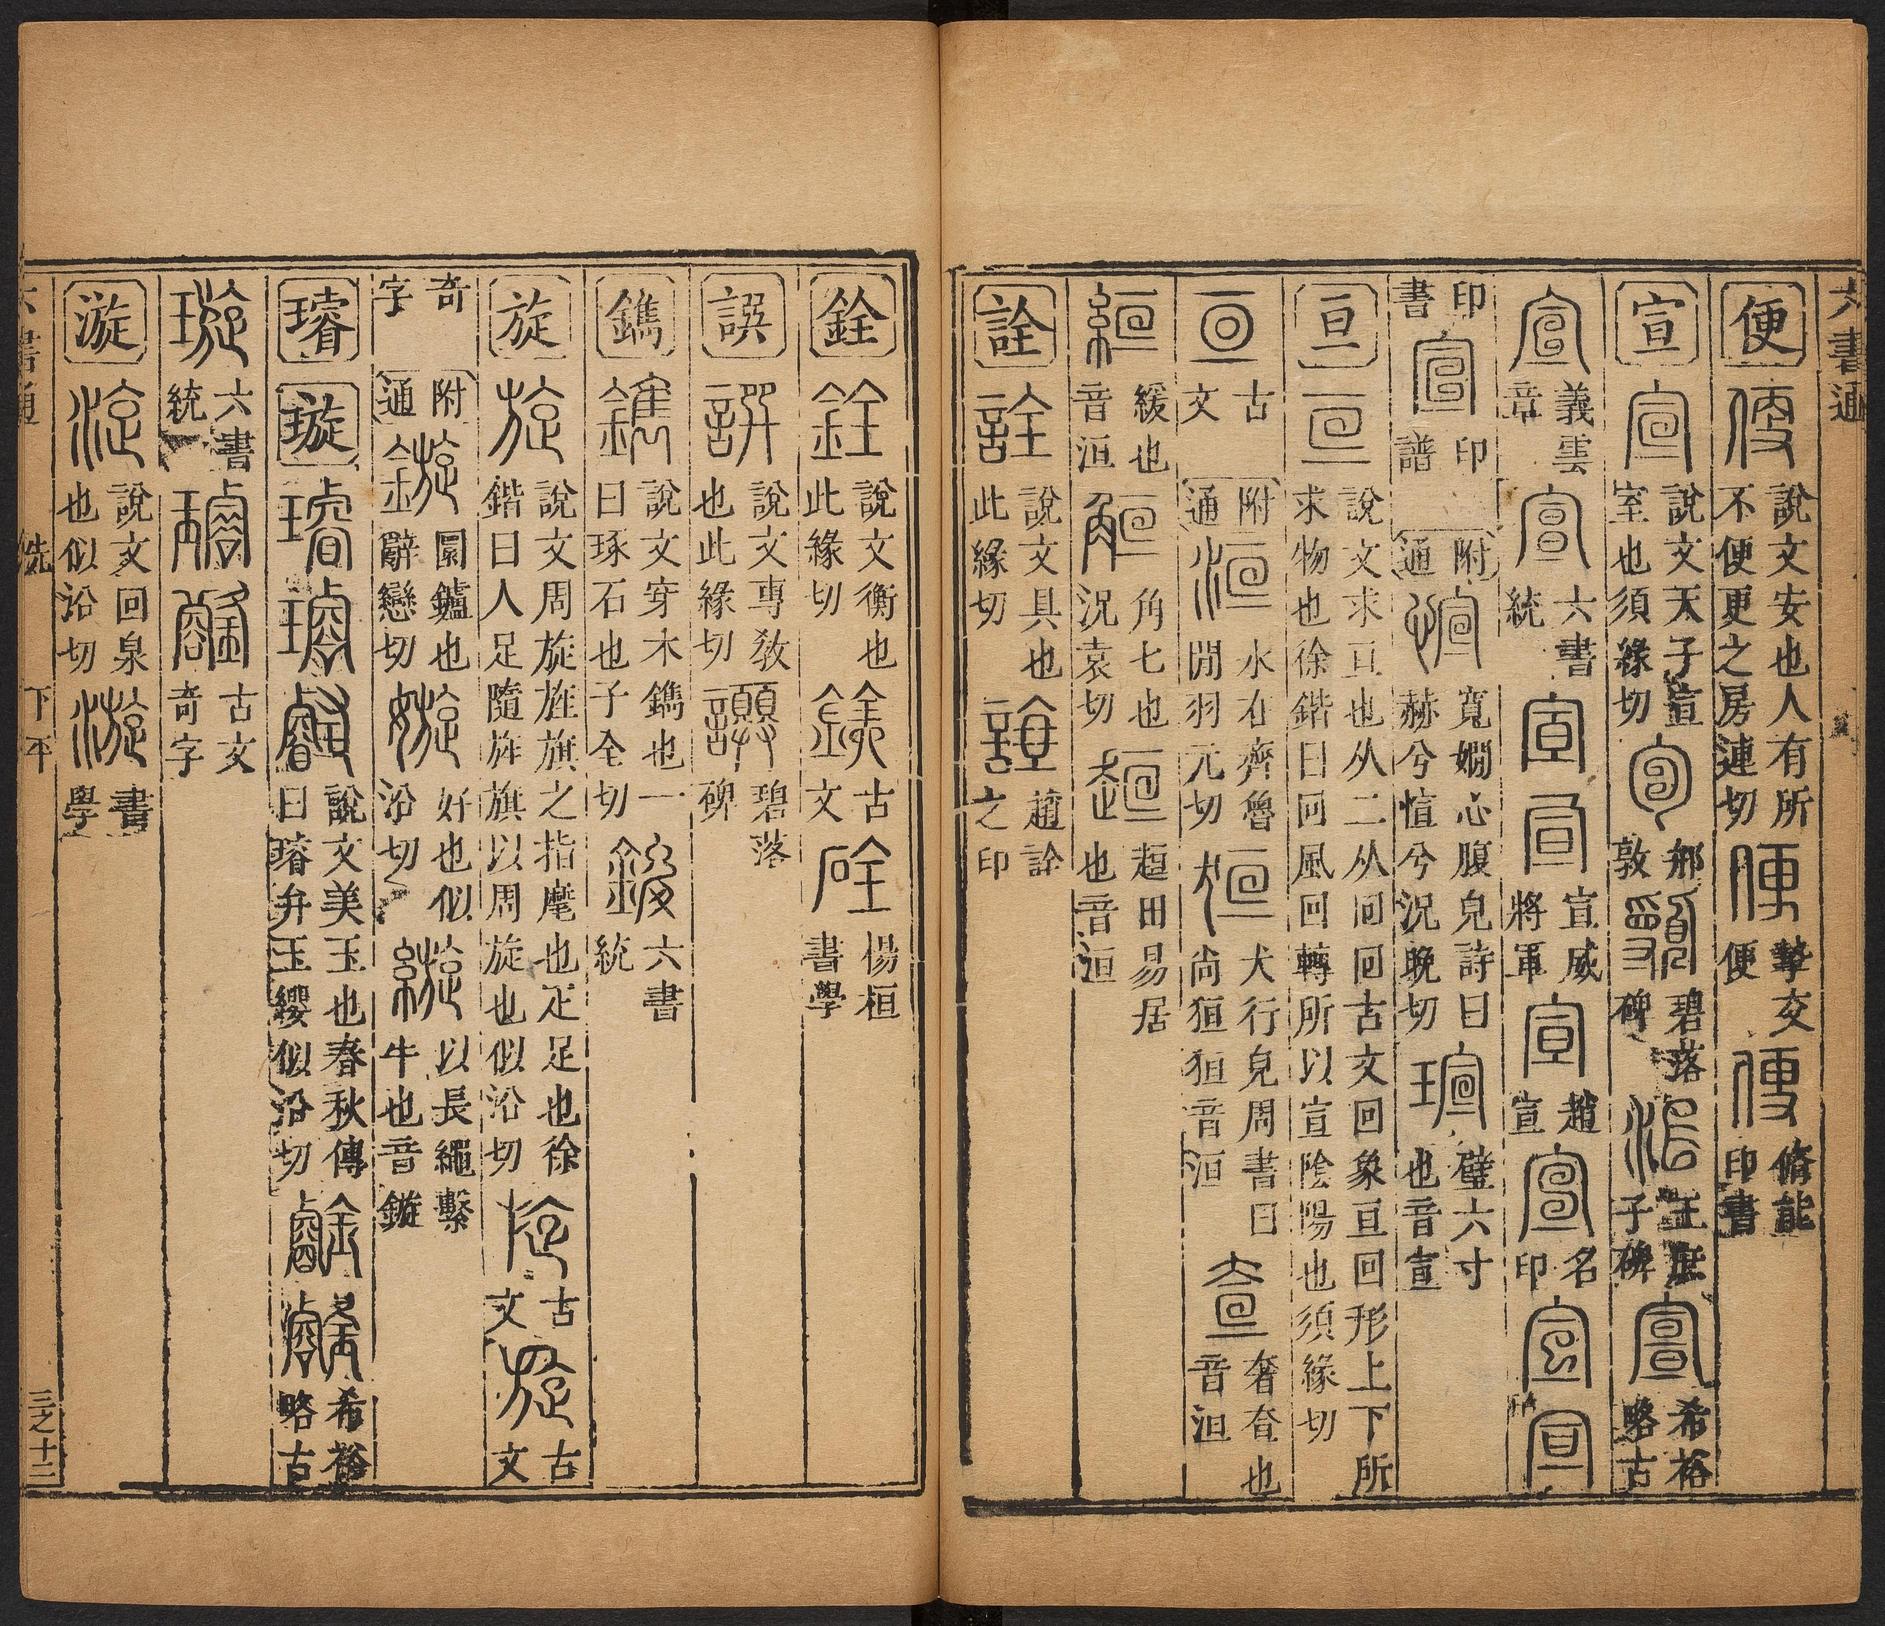 六書通
便 說文安也人有所不便更之房連切 摯交便 脩能印書
宣 說文天子宣室也須緣切 郝敦 碧落碑 王庶子碑 希裕略古
義雲章 六書統 宣威將軍 趙宣 名印
印書 印譜 附通 寬嫺心腹皃詩曰赫兮愃兮況晚切 璧六寸也音宣
亘 說文求亘也从二从囘囘古文回象亘回形上下所求物也徐鍇曰回風回轉所以宣陰陽也須緣切
古文 附通 水在齊魯閒羽元切 犬行皃周書曰尚狟狟音洹 奢奆也音洹
緩也音洹 角匕也況袁切 趄田易居也音洹
詮 說文具也此緣切 趙詮之印
銓 說文衡也此緣切 古文 楊桓書學
譔 說文專敎也此緣切 碧落碑
鐫 說文穿木鐫也一曰琢石也子全切 六書統
旋 說文周旋旌旗之指麾也疋足也徐鍇曰人足隨旌旗以周旋也似沿切 古文 古文
奇字 附通 圜鑪也辭戀切 好也似沿切 以長繩繫牛也音鏇
璿 璇 說文美玉也春秋傳曰璿弁玉纓似沿切 希裕略古
六書統 古文奇字
漩 說文回泉也似沿切 書學
六書通 先 下平 三之十三